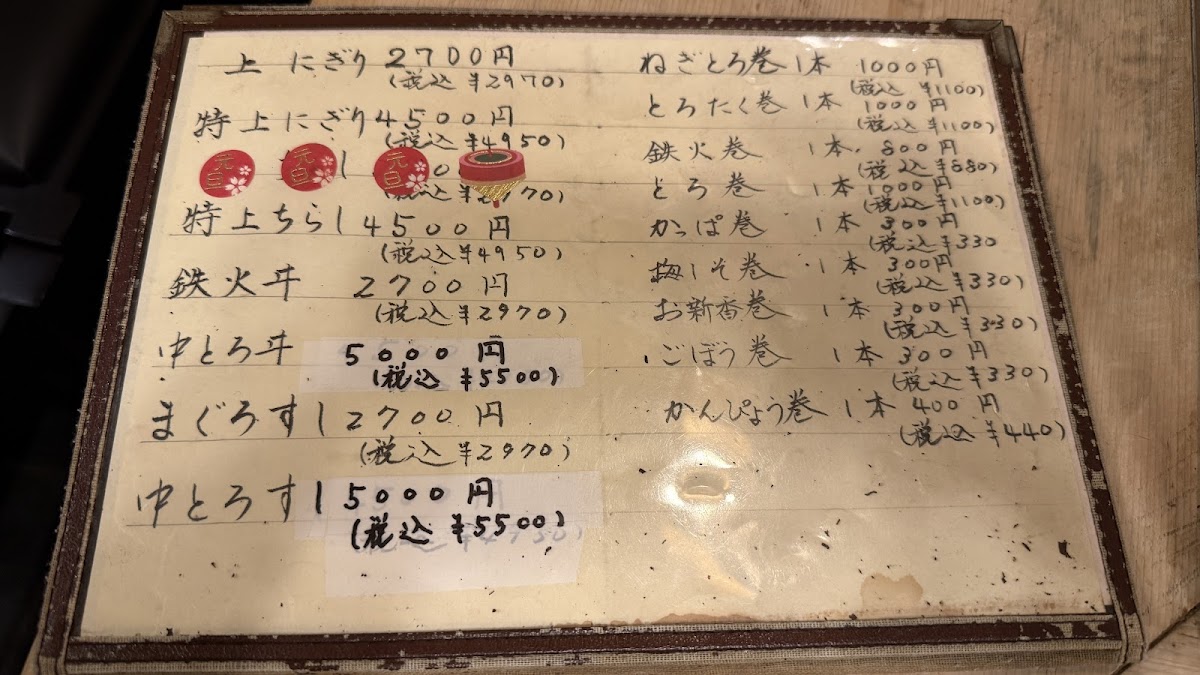 上 にぎり 2700円
(税込 ¥2970)
特上にぎり 4500円
(税込 ¥4950)
元旦 元旦 し 元旦 0
(税込 ¥2970)
特上ちらし 4500円
(税込 ¥4950)
鉄火丼 2700円
(税込 ¥2970)
中とろ丼 5000円
(税込 ¥5500)
まぐろすし 2700円
(税込 ¥2970)
中とろすし 5000円
(税込 ¥5500)
ねぎとろ巻 1本 1000円
(税込 ¥1100)
とろたく巻 1本 1000円
(税込 ¥1100)
鉄火巻 1本 800円
(税込 ¥880)
とろ巻 1本 1000円
(税込 ¥1100)
かっぱ巻 1本 300円
(税込 ¥330
梅しそ巻 1本 300円
(税込 ¥330)
お新香巻 1本 300円
(税込 ¥330)
ごぼう巻 1本 300円
(税込 ¥330)
かんぴょう巻 1本 400円
(税込 ¥440)